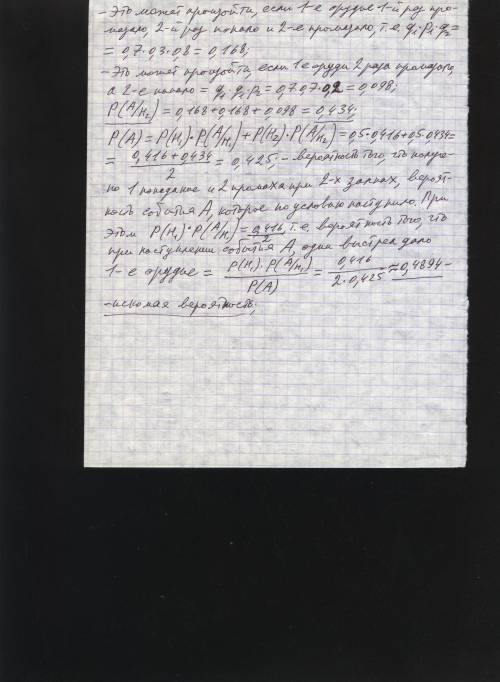 - Это может произойти, если 1-е орудие 1-й раз про-
мазало, 2-й раз попало и 2-е промазало, т.е. q₁·p₁·q₂=
= 0,7·0,3·0,8 = 0,168;
- Это может произойти, если 1-е орудие 2 раза промазало,
а 2-е попало = q₁·q₁·p₂ = 0,7·0,7·0,2 = 0,098;
P(A/H₂) = 0,168+0,168+0,098 = 0,434;
P(A) = P(H₁)·P(A/H₁) + P(H₂)·P(A/H₂) = 0,5·0,416+0,5·0,434=
= (0,416+0,434)/2 = 0,425; - вероятность того, что получе-
но 1 попадание и 2 промаха при 2-х залпах, вероят-
ность события A, которое по условию наступило. При
этом P(H₁)·P(A/H₁) = 0,416/2, т.е. вероятность того, что
при наступлении события A, один выстрел дало
1-е орудие = P(H₁)·P(A/H₁)/P(A) = 0,416/(2·0,425) ≈ 0,4894 -
- искомая вероятность;